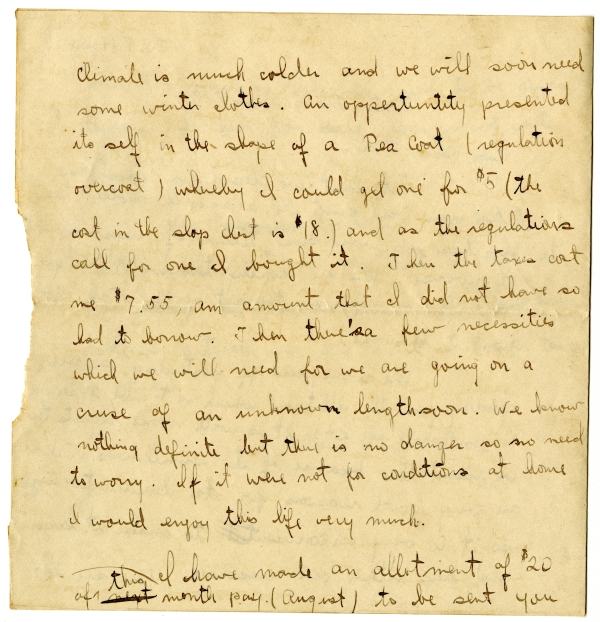 climate is much colder and we will soon need
some winter clothes. An oppertuntity presented
its self in the shape of a Pea Coat (regulation
overcoat) whereby I could get one for $5 (the
cost in the slop chest is $18.) and as the regulations
call for one I bought it. Then the taxes cost
me $7.55, am amount that I did not have so
had to borrow. Then there's a few necessities
which we will need for we are going on a
cruse of an unknown length soon. We know
nothing definite but there is no danger so no need
to worry. If it were not for conditions at home
I would enjoy this life very much.
I have made an allotment of $20
of this month pay. (August) to be sent you